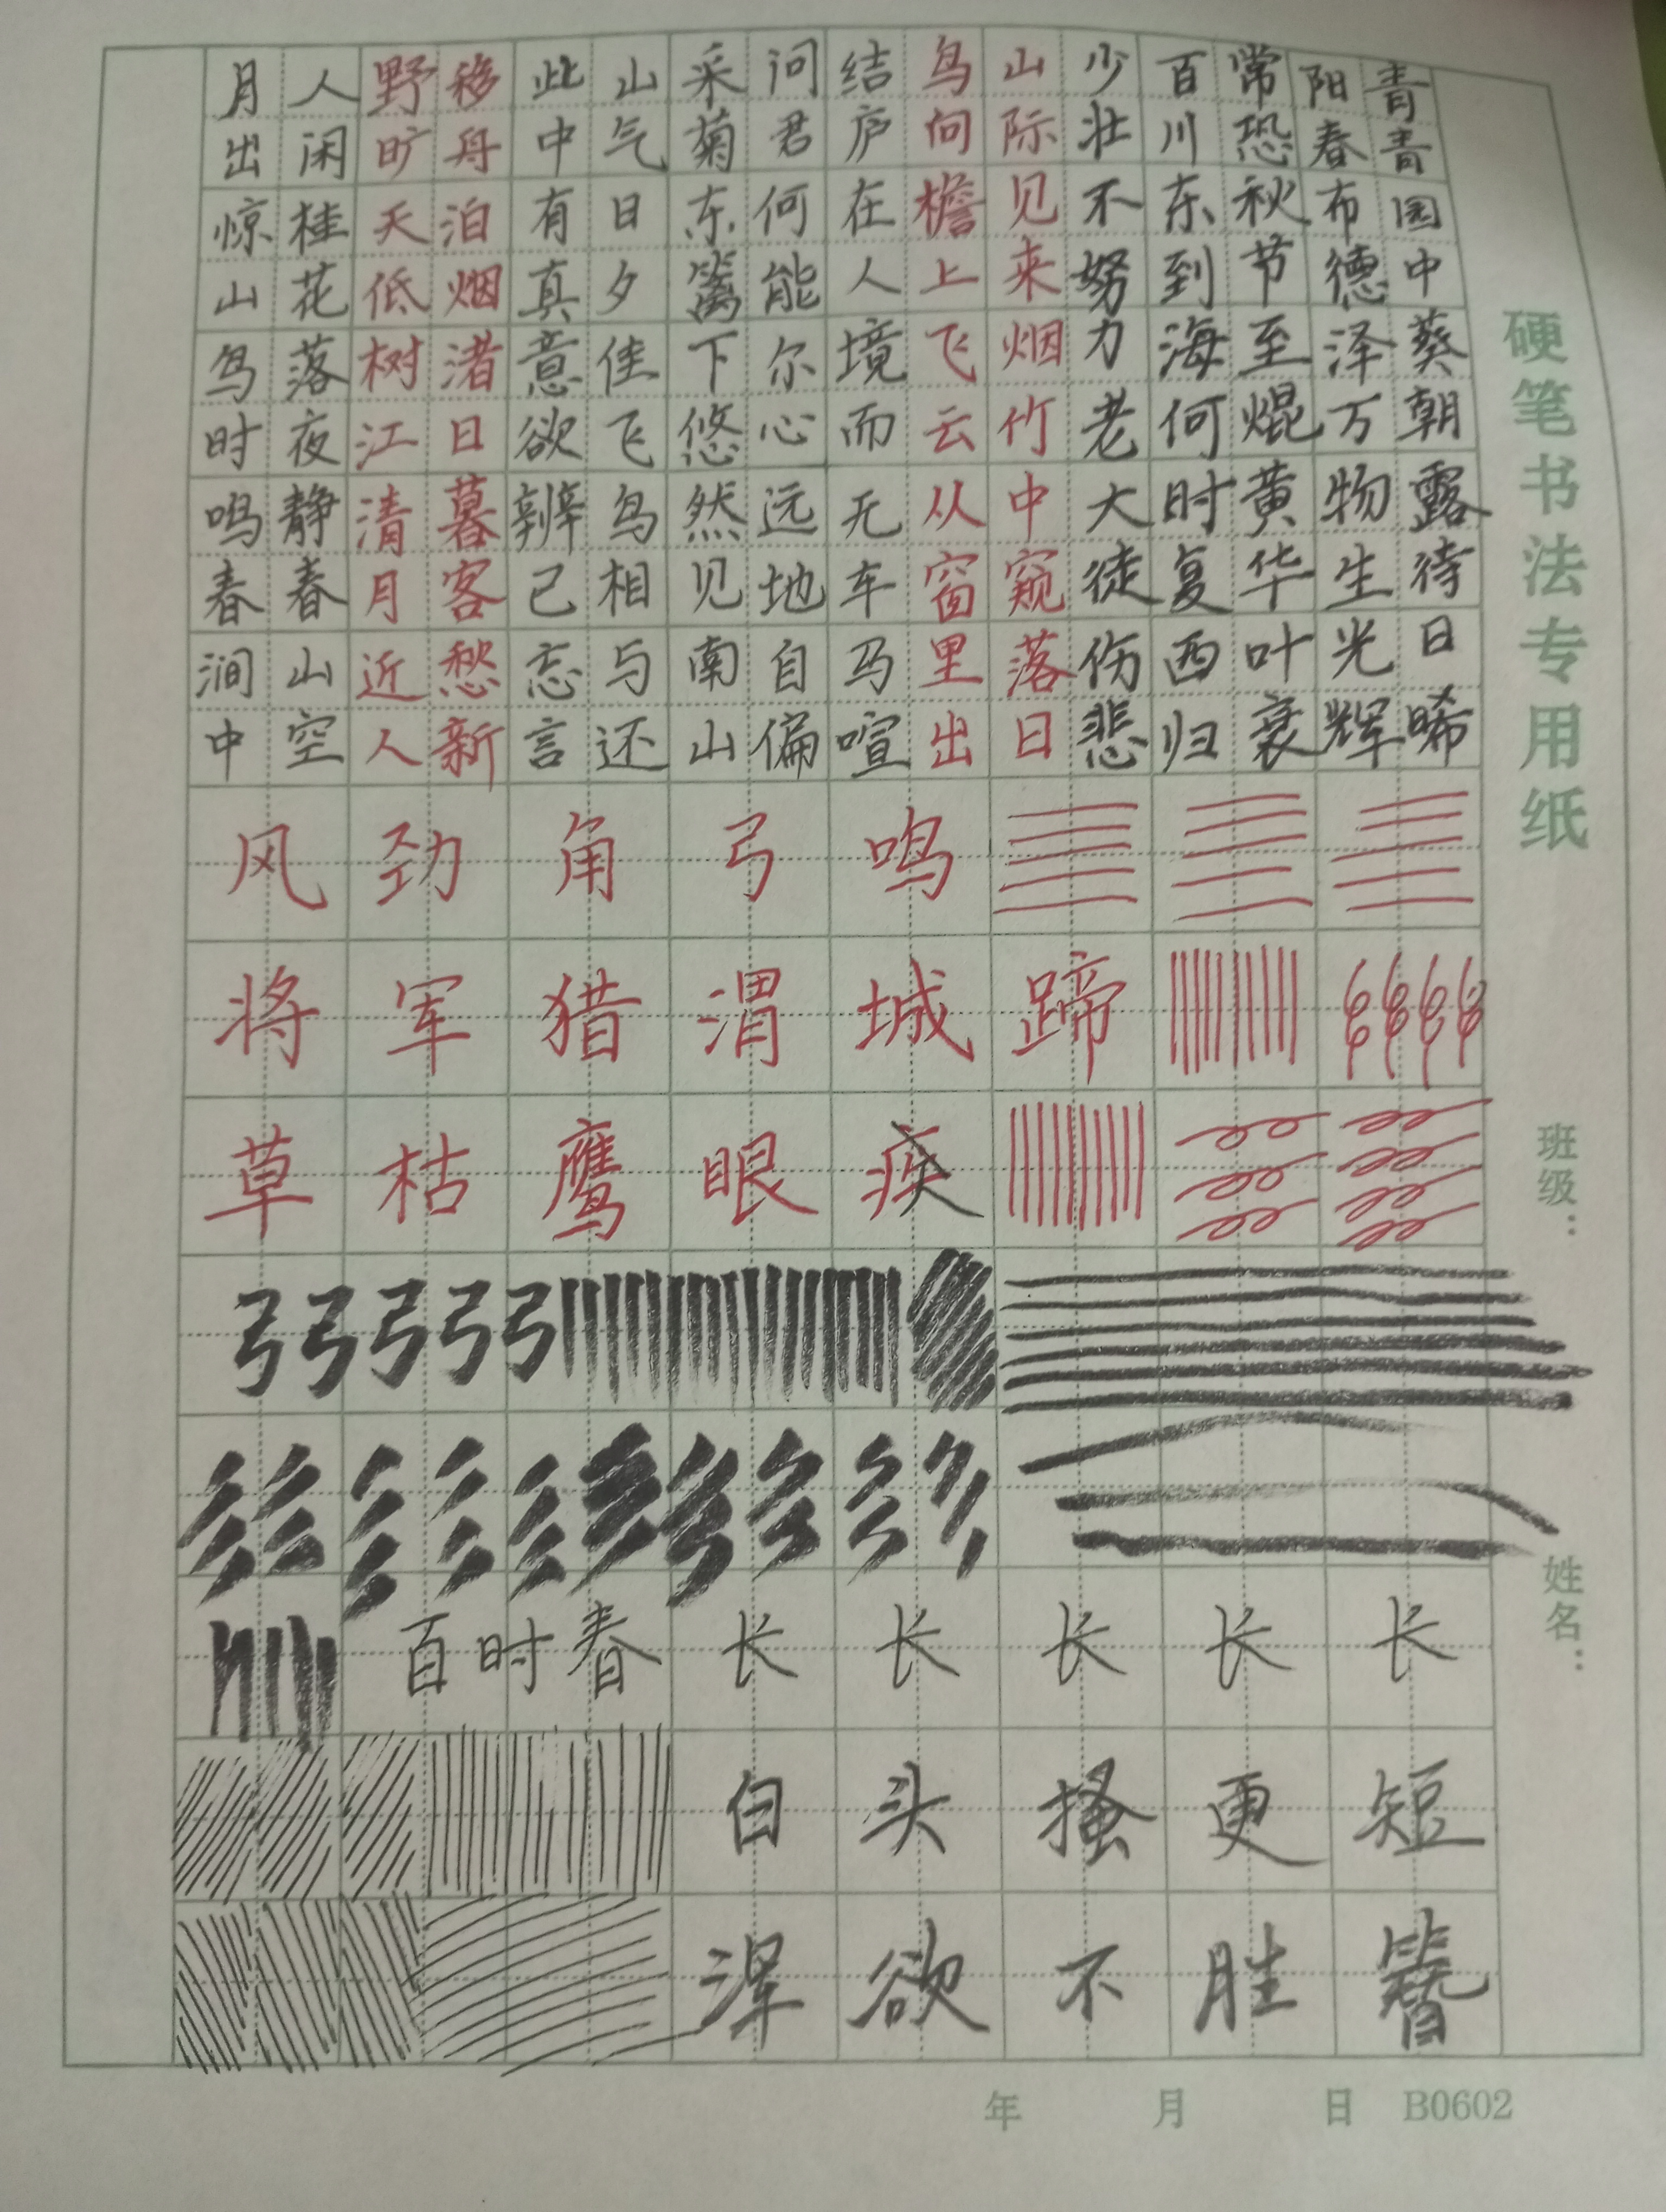 硬笔书法专用纸
班级：
姓名：
青青园中葵朝露待日晞
阳春布德泽万物生光辉
常恐秋节至焜黄华叶衰
百川东到海何时复西归
少壮不努力老大徒伤悲
山际见来烟竹中窥落日
鸟向檐上飞云从窗里出
结庐在人境而无车马喧
问君何能尔心远地自偏
采菊东篱下悠然见南山
山气日夕佳飞鸟相与还
此中有真意欲辨己忘言
移舟泊烟渚日暮客愁新
野旷天低树江清月近人
人闲桂花落夜静春山空
月出惊山鸟时鸣春涧中
风劲角弓鸣
将军猎渭城蹄
草枯鹰眼疾
弓弓弓弓弓
百时春长长长长长
白头搔更短
浑欲不胜簪
年 月 日 B0602